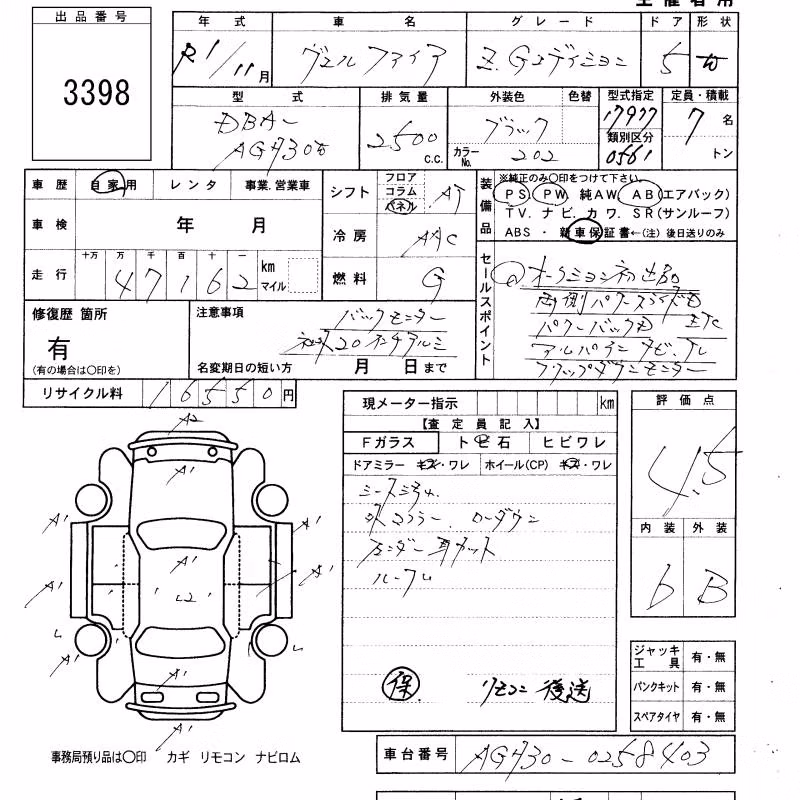 出品番号
3398
年式 車名 グレード ドア 形状
R1/11月 ヴェルファイア Z.Gエディション 5 W
型式 排気量 外装色 色替 型式指定 定員・積載
DBA- AGH30W 2500 c.c. ブラック カラーNo. 202 17977 類別区分 0561 7名 トン
車歴 自家用 レンタ 事業.営業車
車検 年 月
走行 十万 万 千 百 十 一 47162 km マイル
シフト フロア コラム パネル AT
冷房 AAC
燃料 G
装備品
※純正のみ○印をつけて下さい。
PS. PW. 純AW. AB(エアバック)
TV. ナビ. カワ. SR(サンルーフ)
ABS ・ 新車保証書←(注) 後日送りのみ
セールスポイント
オークション初出品
両側パワースライドD
パワーバックD ETC
アルパインナビ.TV
フリップダウンモニター
修復歴 箇所
有
(有の場合は○印を)
注意事項
バックモニター
社外20インチアルミ
名変期日の短い方 月 日まで
リサイクル料 16550円
現メーター指示 km
【査定員記入】
Fガラス トビ石 ヒビワレ
ドアミラー キズ・ワレ ホイール(CP) キズ・ワレ
シースミ
マフラー. ローダウン
カット
ルーフ
保. リモコン 後送
評価点
4.5
内装 外装
b B
ジャッキ工具 有・無
パンクキット 有・無
スペアタイヤ 有・無
A2
A1
A1
A1
A1
A1
A1
A1
A1
L2
L
L
A1
A1
A1
事務局預り品は○印 カギ リモコン ナビロム
車台番号 AGH30-0258403